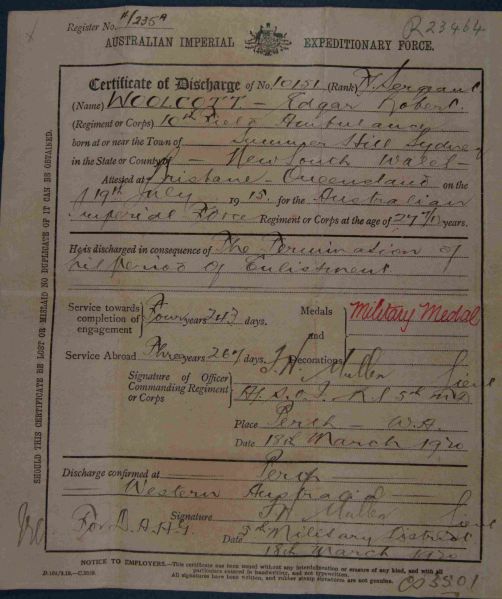 Register No. A/235A
R23464
AUSTRALIAN IMPERIAL EXPEDITIONARY FORCE.
Certificate of Discharge of No. 10151 (Rank) T. Sergeant
(Name) WOOLCOTT - Edgar Robert.
(Regiment or Corps) 10th Field Ambulance
born at or near the Town of Summer Hill Sydney
in the State or County of - New South Wales -
Attested at Brisbane - Queensland on the
19th July 1915 for the Australian
Imperial Force Regiment or Corps at the age of 27 years.
He is discharged in consequence of The Termination of
his Period of Enlistment
Service towards completion of engagement } Four years 243 days.
Medals and Decorations } Military Medal
Service Abroad Three years days.
Signature of Officer Commanding Regiment or Corps } Mullen Lieut
5th M.D.
Place Perth - W.A.
Date 18th March 1920
Discharge confirmed at Perth
Western Australia
Signature Mullen Lieut
For D.A.A.G. 5th Military District
Date 18th March 1920
NOTICE TO EMPLOYERS.—This certificate has been issued without any interlineation or erasure of any kind, and with all
particulars entered in handwriting, and not typewritten.
All signatures have been written, and rubber stamp signatures are not genuine.
SHOULD THIS CERTIFICATE BE LOST OR MISLAID NO DUPLICATE OF IT CAN BE OBTAINED.